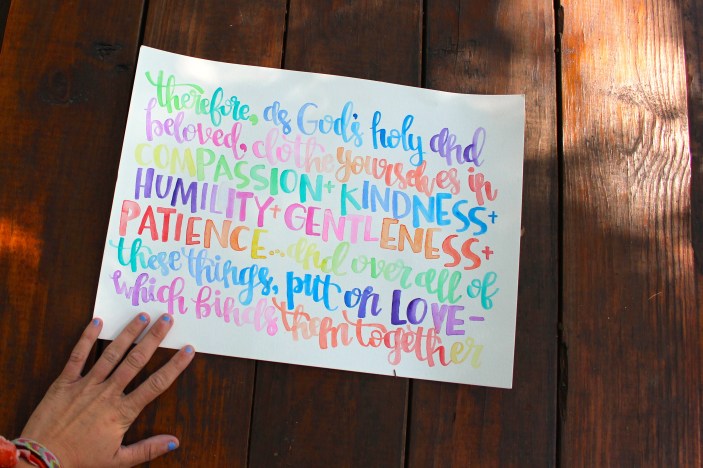 therefore, as God's holy and
beloved, clothe yourselves in
COMPASSION + KINDNESS +
HUMILITY + GENTLENESS +
PATIENCE...and over all of
these things, put on LOVE-
which binds them together